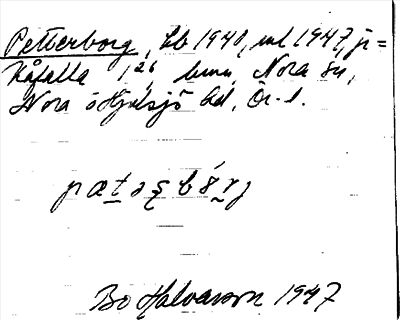 Petterborg, hb 1940, ml 1947, jr =
Kåfalla 1²⁶, kmn, Nora sn,
Nora o Hjulsjö bd, Ör. l.
pætəʂbórj
Bo Halvarson 1947